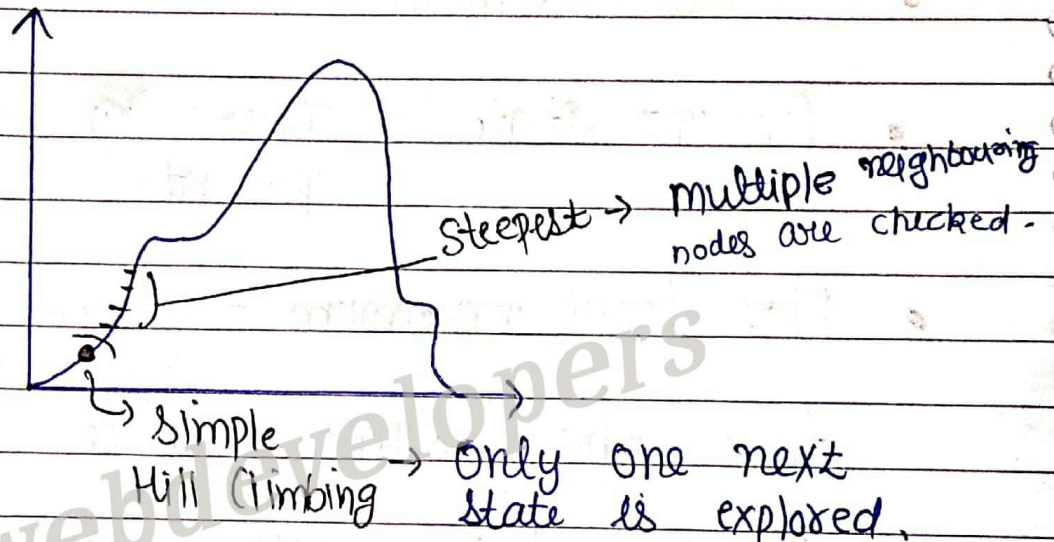 Steepest → Multiple neighbouring
nodes are checked.
Simple
Hill Climbing → Only one next
state is explored.
webdevelopers